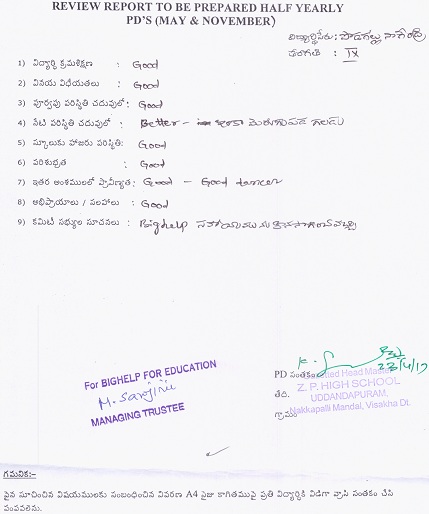 REVIEW REPORT TO BE PREPARED HALF YEARLY
PD'S (MAY & NOVEMBER)
విద్యార్థి పేరు:
తరగతి : IX
1) విద్యార్థి క్రమశిక్షణ : Good
2) వినయ విధేయతలు : Good
3) పూర్వపు పరిస్థితి చదువులో : Good
4) నేటి పరిస్థితి చదువులో : Better - ఇంకా మెరుగుపడ గలడు
5) స్కూలుకు హాజరు పరిస్థితి: Good
6) పరిశుభ్రత : Good
7) ఇతర అంశములలో ప్రావీణ్యత: Good - Good dancer
8) అభిప్రాయాలు / సలహాలు : Good
9) కమిటి సభ్యుల సూచనలు : Bighelp
For BIGHELP FOR EDUCATION
M. Sarojini
MANAGING TRUSTEE
PD సంతకం Head Master
Z. P. HIGH SCHOOL
తేది. UDDANDAPURAM,
గ్రామం Nakkapalli Mandal, Visakha Dt.
గమనిక:-
పైన సూచించిన విషయములకు సంబంధించిన వివరణ A4 సైజు కాగితముపై ప్రతి విద్యార్థికి విడిగా వ్రాసి సంతకం చేసి
పంపవలెను.